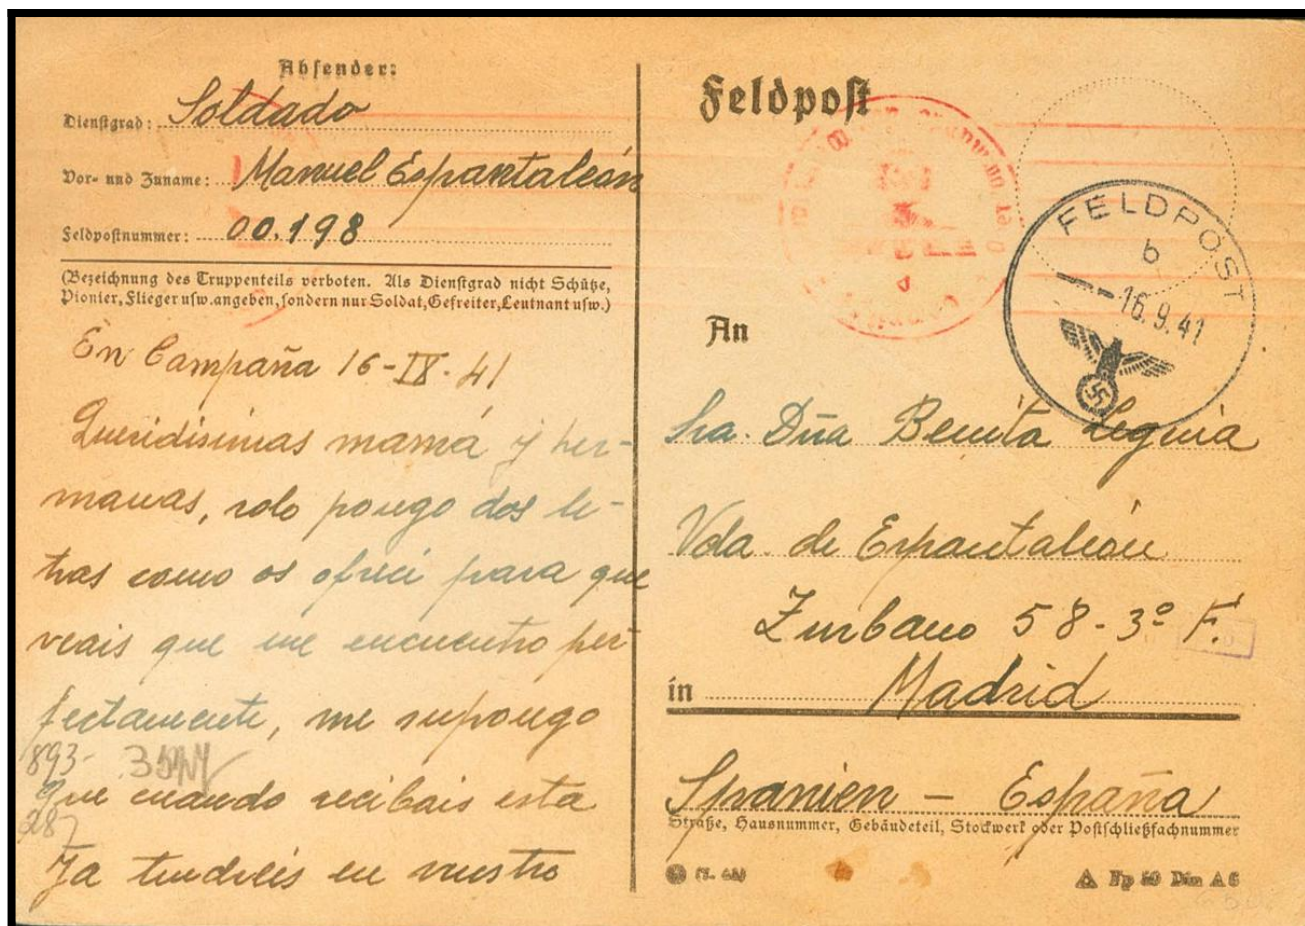 Absender:
Dienstgrad: Soldado
Vor- und Zuname: Manuel Espantaleón
Feldpostnummer: 00.198
(Bezeichnung des Truppenteils verboten. Als Dienstgrad nicht Schütze,
Pionier, Flieger usw. angeben, sondern nur Soldat, Gefreiter, Leutnant usw.)
En Campaña 16-IX-41
Queridisimas mamá y her-
manas, solo pongo dos le-
tras como os ofreci para que
veais que me encuentro per-
fectamente, me supongo
893-
que cuando recibais esta
287
Ya tendreis en vuestro
Feldpost
FELDPOST
b
16.9.41
An
Sra. Dña Benita Leguia
Vda. de Espantaleón
Zurbano 58-3º F.
in Madrid
Spanien - España
Straße, Hausnummer, Gebäudeteil, Stockwerk oder Postschließfachnummer
Fp 50 Din A 6